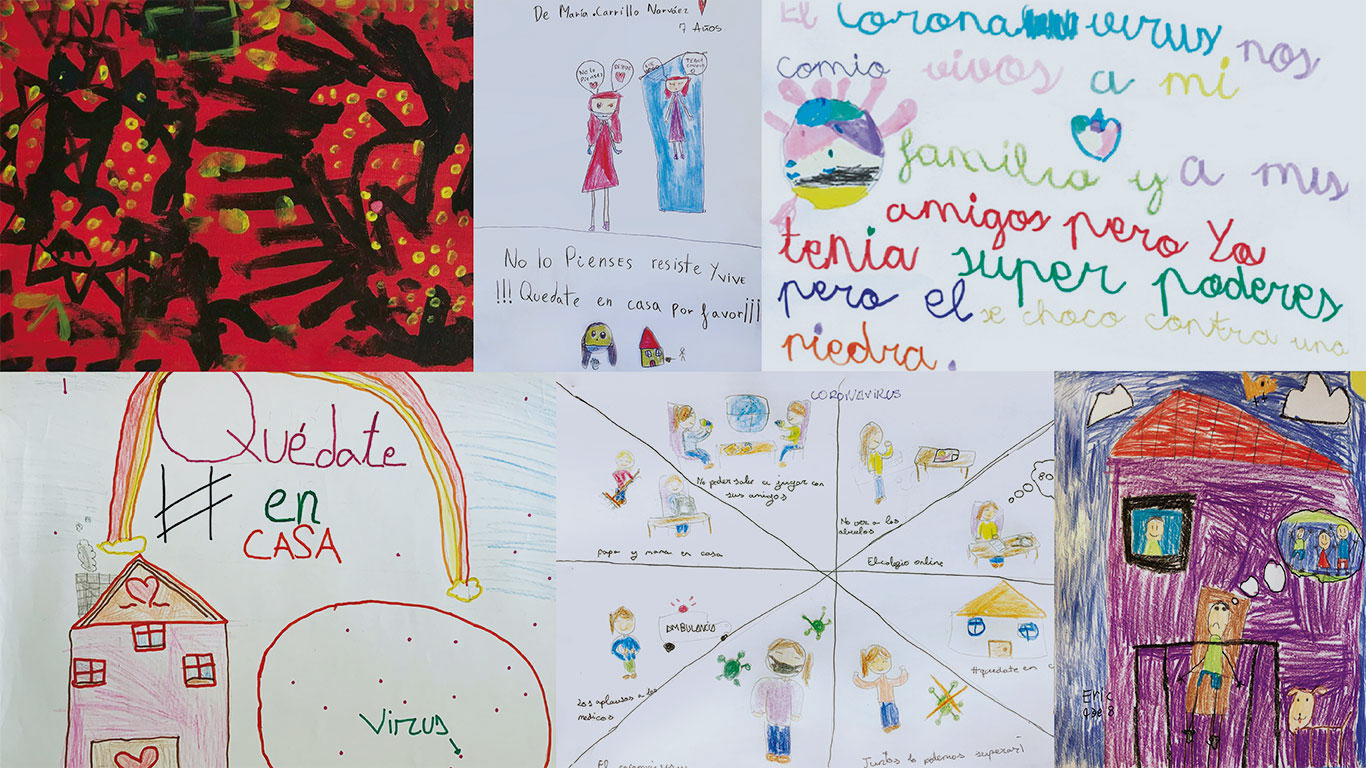 De María.Carrillo Narváez
7 Años
No lo
Pienses
No lo Pienses resiste y vive
!!!Quedate en casa por favor¡¡¡
El corona virus nos
comio vivos a mi
familia y a mis
amigos pero Yo
tenia super poderes
pero el se choco contra una
piedra.
Quédate
#
en
CASA
Virus
CORONAVIRUS
No poder salir a jugar con
sus amigos
papa y mama en casa
No ver a los
abuelos
El colegio online
AMBULANCIA
los aplausos a los
medicos
#quedate en c
Juntos lo podemos superar!
Eric